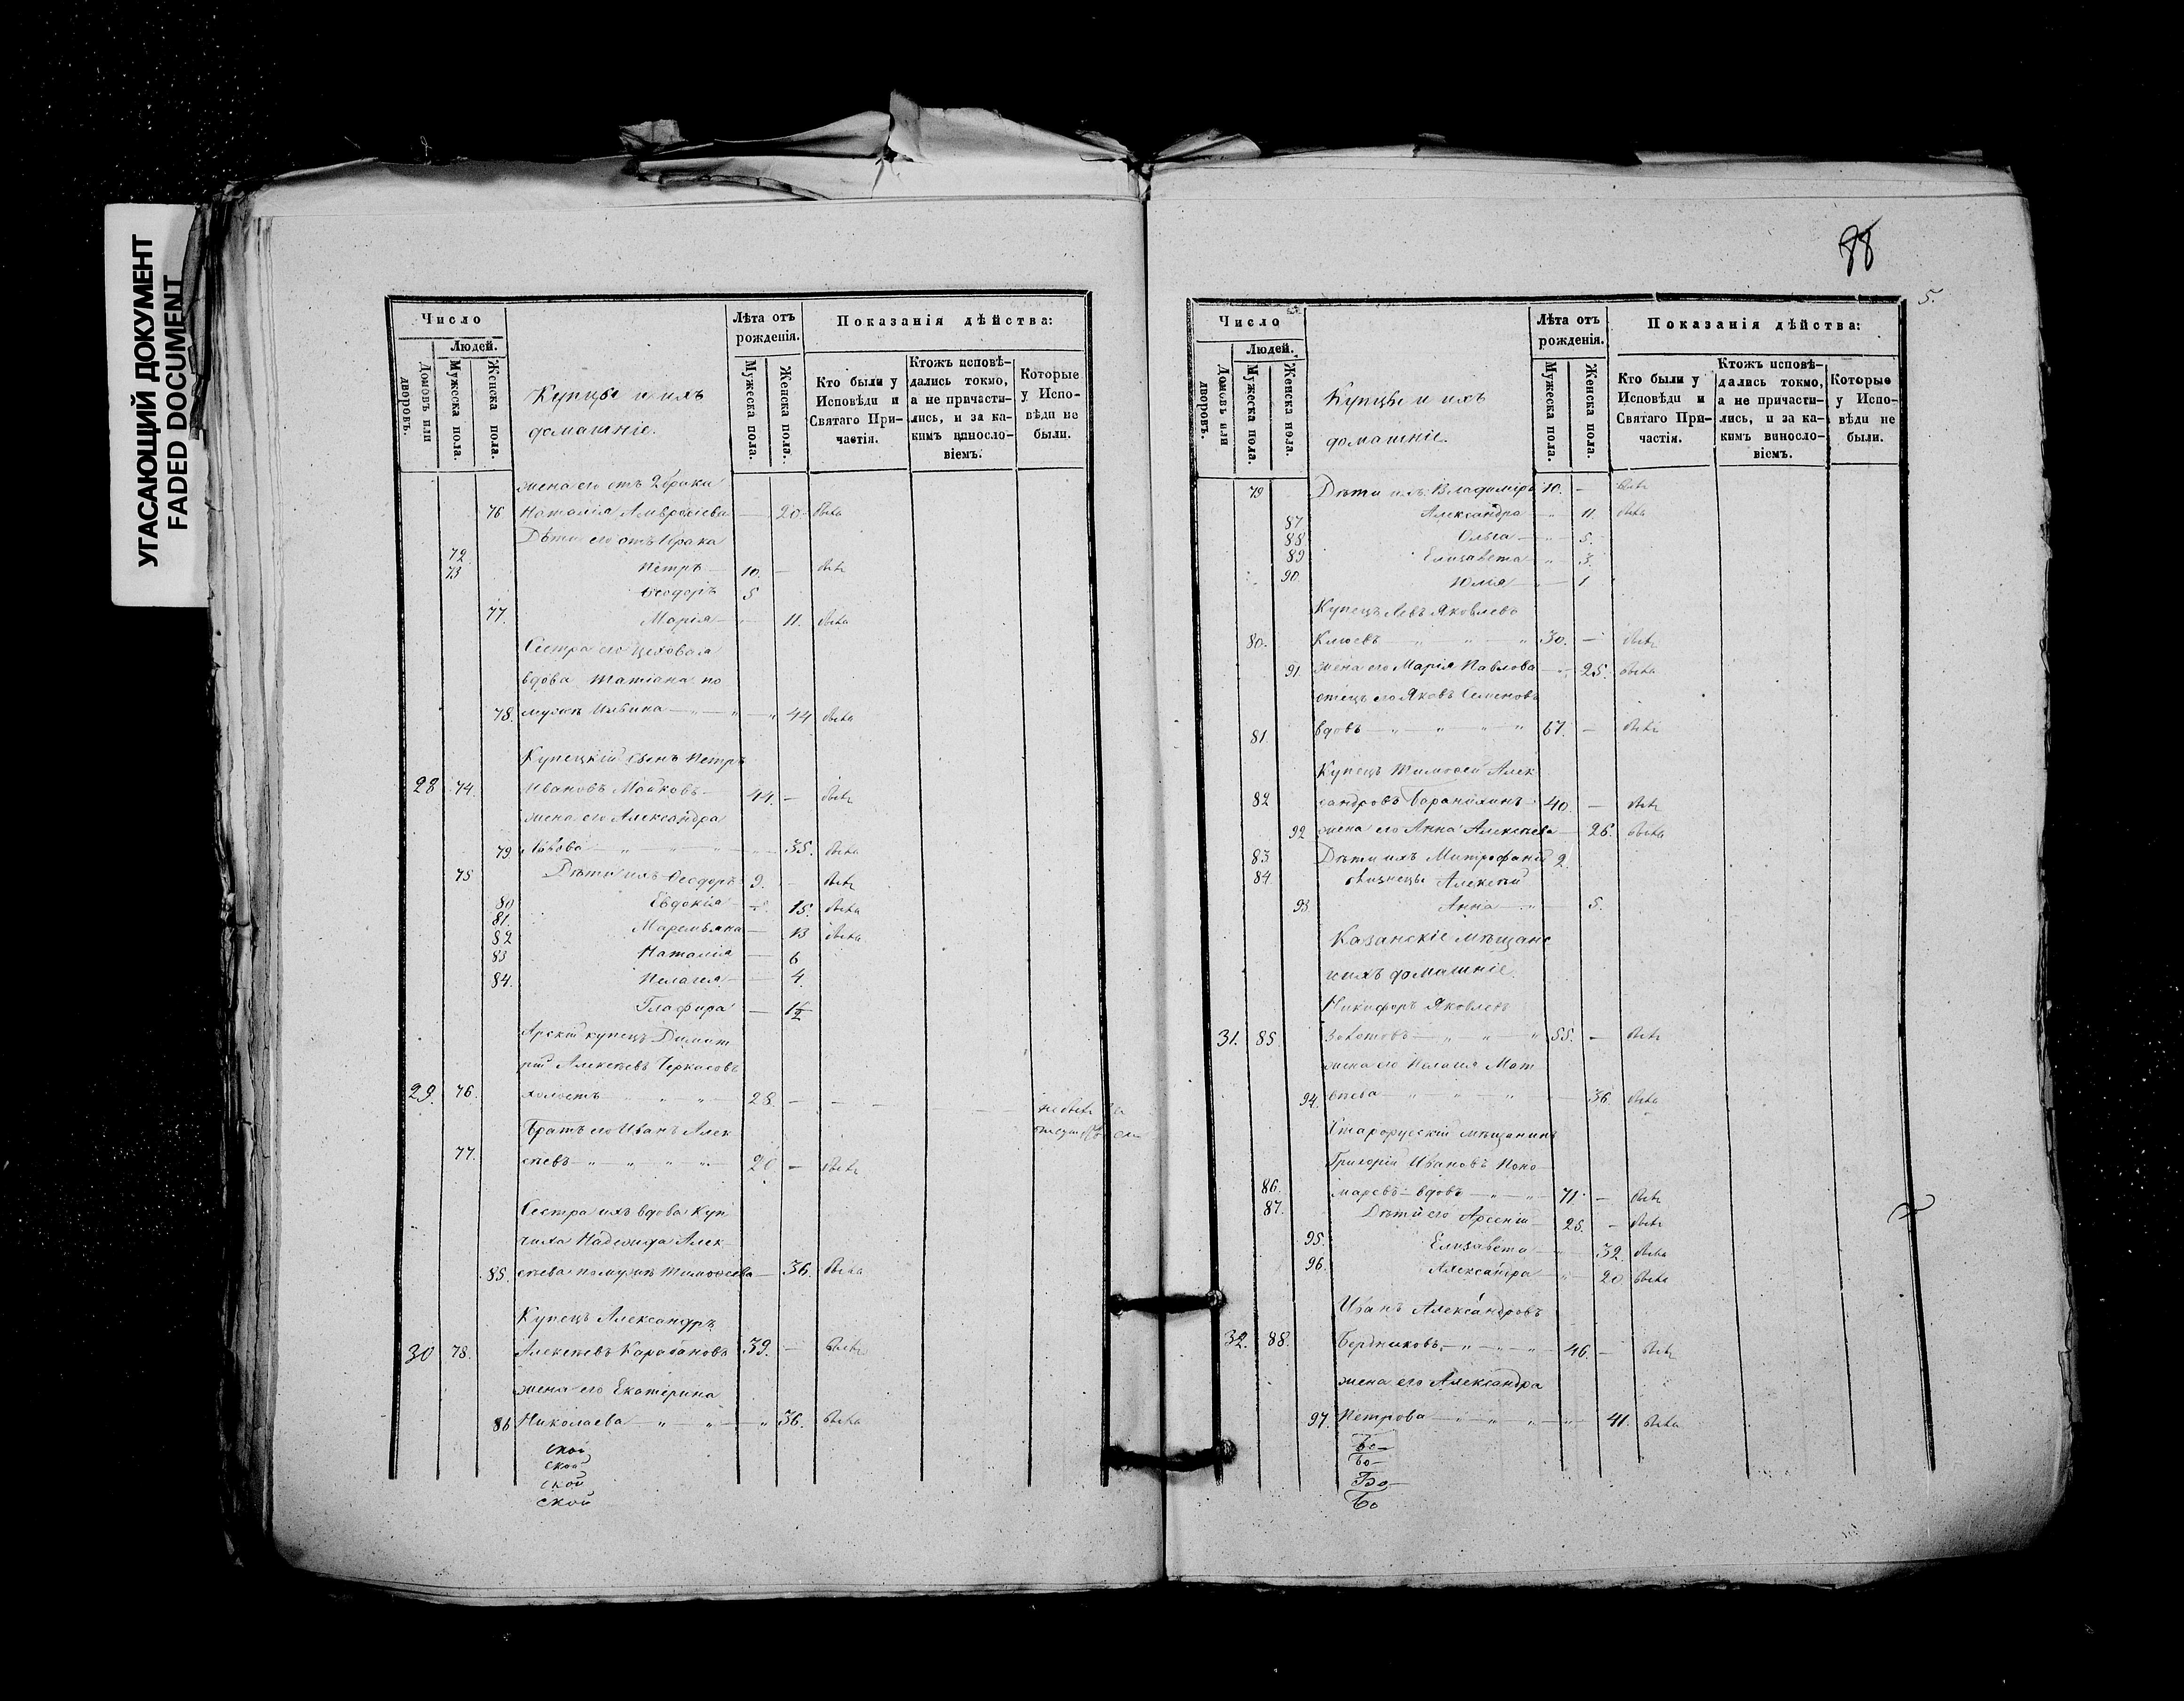 УГАСАЮЩИЙ ДОКУМЕНТ
FADED DOCUMENT
Число
Людей.
Домовъ или дворовъ.
Мужеска пола.
Женска пола.
Купцы и ихъ
домашніе.
Лѣта отъ рожденія.
Мужеска пола.
Женска пола.
Показанія дѣйства:
Кто были у Исповѣди и Святаго Причастія.
Ктожъ исповѣдались токмо, а не причастились, и за какимъ винословіемъ.
Которые у Исповѣди не были.
жена его отъ 2 брака
76 Наталія — 20. была
Дѣти его отъ 1 брака
72 Петръ — 10. — былъ
73 Ѳеодоръ 5
77. Марія — 11. была
Сестра его Цеховая
вдова Татіана по
78. мужѣ Ильина — 44 была
Купецкій сынъ Петръ
28 74. Ивановъ Майковъ — 44. — былъ
жена его Александра
79 Львова — 35. была
75 Дѣти ихъ Ѳеодоръ 9. — былъ
80 Евдокія — 15. была
81. Маремьяна — 13 была
82 Наталія — 6
83 Пелагія — 4.
84. Глафира — 1½
Арскій купецъ Димит
рій Алексѣевъ Черкасовъ
29. 76. холостъ — 28. — — —
не былъ
Братъ его Иванъ Алек
77. сѣевъ — 20 — былъ
Сестра ихъ вдова Куп
чиха Надежда Алек
85. сѣева по мужѣ Тимоѳеева — 36. была
Купецъ Александръ
30 78. Алексѣевъ Карабановъ 39. — былъ
жена его Екатерина
86 Николаева — 36. была
ской
ской
ской
ской
98
5.
Число
Людей.
Домовъ или дворовъ.
Мужеска пола.
Женска пола.
Купцы и ихъ
домашніе.
Лѣта отъ рожденія.
Мужеска пола.
Женска пола.
Показанія дѣйства:
Кто были у Исповѣди и Святаго Причастія.
Ктожъ исповѣдались токмо, а не причастились, и за какимъ винословіемъ.
Которые у Исповѣди не были.
79 Дѣти ихъ: Владиміръ 10. — былъ
87 Александра — 11. была
88 Ольга — 5.
89 Елизавета — 3.
90. Юлія — 1
Купецъ Левъ Яковлевъ
80. Клюевъ — 30. — былъ
91. жена его Марія Павлова — 25. была
отецъ его Яковъ Семеновъ
81. вдовъ — 67. — былъ
Купецъ Тимоѳей Алек
82 сандровъ — 40. — былъ
92 жена его Анна Алексѣева — 26. была
83 Дѣти ихъ Митрофаній 2
84. близнецы Алексѣй
93. Анна — 5.
Казанскіе мѣщане
и ихъ домашніе.
Никифоръ Яковлевъ
31. 85 Золотовъ — 55. — былъ
жена его Пелагія Мат
94. вѣева — 36 была
Старорусскій мѣщанинъ
Григорій Ивановъ Поно
86. маревъ — вдовъ — 71. — былъ
87. Дѣти его Арсеній — 25. — былъ
95. Елизавета — 32 была
96. Александра — 20 была
Иванъ Александровъ
32. 88. Бердниковъ — 46. — былъ
жена его Александра
97. Петрова — 41. была
Бо—
Бо—
Бо—
Бо